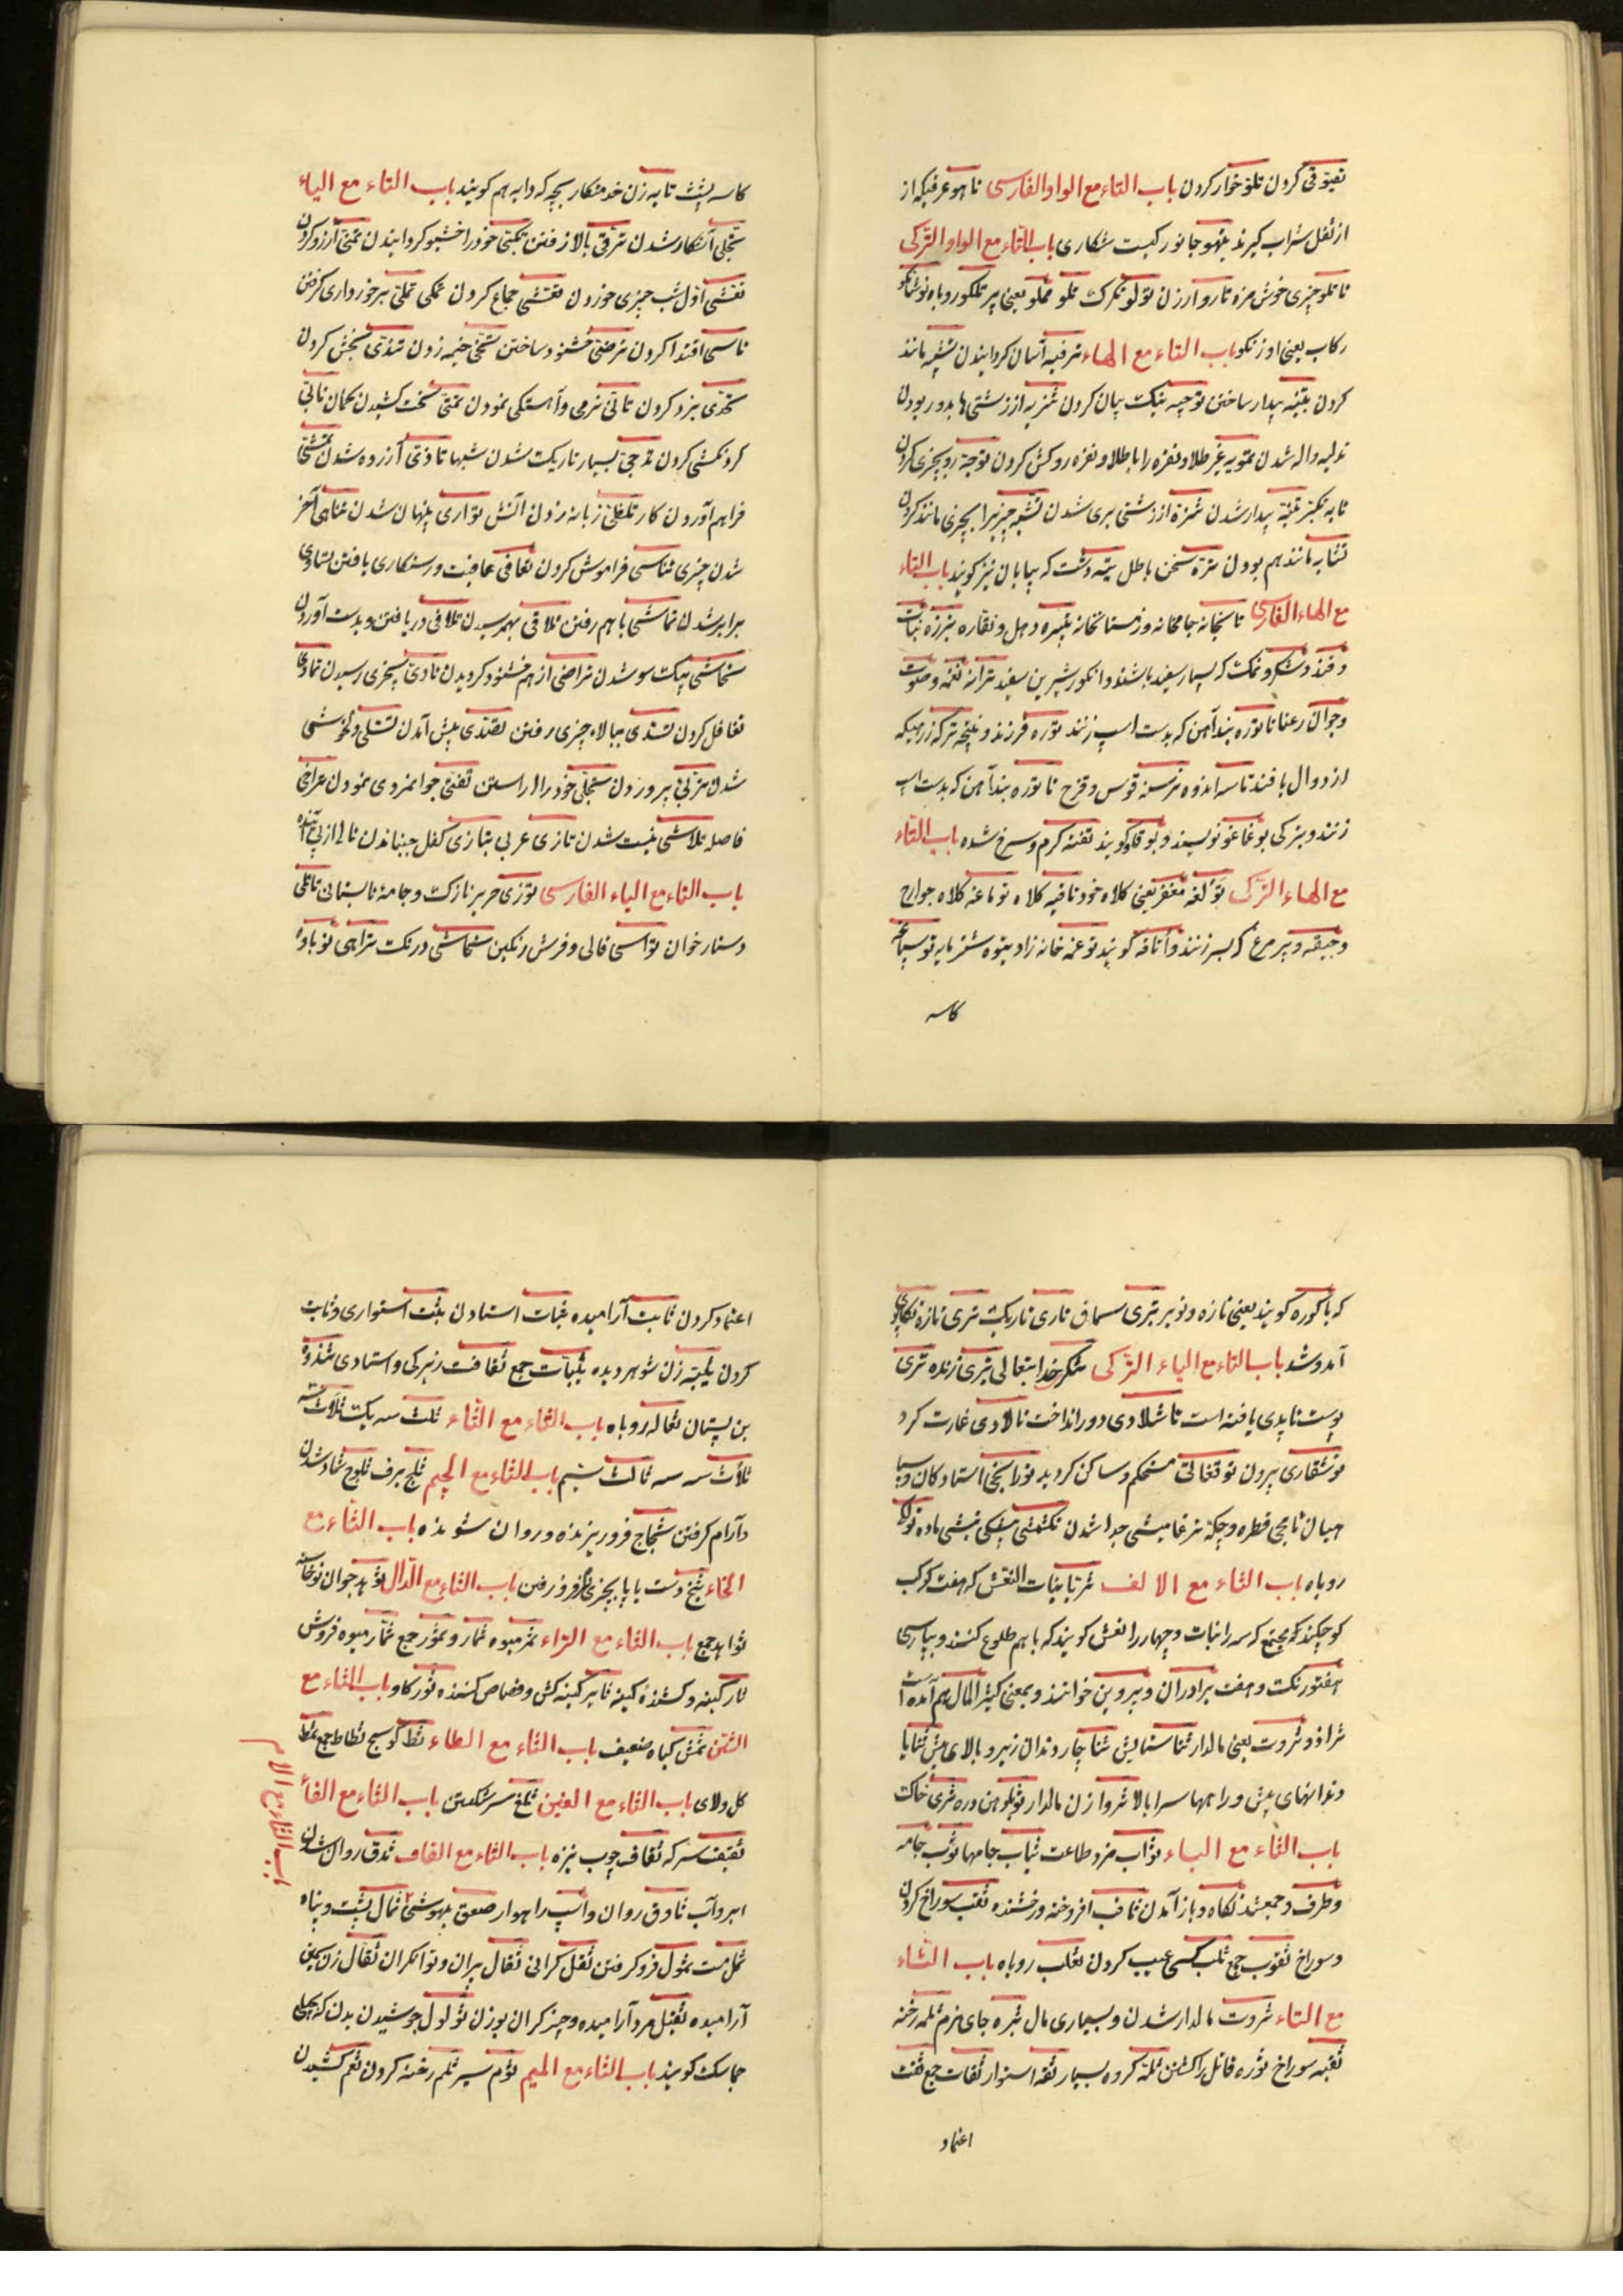 تفوّقی کردن تلو خوار کردن باب التاء مع الواو الفارسی تاهو عرقیکه از
از ثقل شراب گیرند تیهو جانوریست شکاری باب التاء مع الواو الترکی
تاتلو چیزی خوش مزه تارو ارزن تولو تگرگ
رکاب یعنی اوزنکو باب التاء مع الهاء ترفیه آسان گردانیدن تشبیه مانند
کردن تنبیه بیدار ساختن توجیه نیک بیان کردن تنزیه از زشتی ها بدور بودن
تدلیه واله شدن تمویه غیر طلا و نقره را با طلا و نقره روکش کردن توجه رو بچیزی کردن
تنبه بیدار شدن تنزه از زشتی بری شدن تشبه چیزیرا بچیزی مانند کردن
تشابه مانند هم بودن ترّه سخن باطل تیه دشت که بیابان نیز گویند باب التاء
مع الهاء الفارسی تابخانه جامخانه وزمستانخانه تبیره دهل و نقاره تبرزه نبات
و قند و شکر و نمک که بسیار سفید باشند و انگور شیرین سفید ترانه نغمه و صوت
و جوان رعنا تاتوره بند آهن که بدست اسب زنند توره فرزند
از دوال بافند تاسه اندوه ترسه قوس و قزح تاتوره بند آهن که بدست اسب
زنند و بترکی بوغاغو نویسند و بوقاو گویند تفته گرم و سرخ شده باب التاء
مع الهاء الترکی تولغه مغفر یعنی کلاه خود تاقیه کلاه توماغه کلاه جوارح
و جیقه و پر مرغ که بسر زنند و أتاقه گویند توغمه خانه زاد
کاسه
کاسه پشت تایه زن خدمتکار بچه که دایه هم گویند باب التاء مع الیاء
تجلی آشکار شدن ترقی بالا رفتن خودرا خشبو گردانیدن تمنّی آرزو کردن
تعشی اول شب چیزی خوردن تغشی جماع کردن تملی برخورداری گرفتن
تاسی اقتدا کردن ترضی خشنود ساختن تخیّی خیمه زدن تندّی بخشش کردن
تحدّی نبرد کردن تانّی نرمی و آهستگی نمودن تمتّی سخت کشیدن کمان
گردنکشی کردن تدجّی بسیار تاریک شدن شبها تاذّی آزرده شدن تمشّی
فراهم آوردن کار تلظّی زبانه زدن آتش تواری پنهان شدن تناهی آخر
شدن چیزی تناسی فراموش کردن تعافی عافیت و رستگاری یافتن تساوی
برابر شدن تماشی با هم رفتن تلاقی بهم رسیدن تلافی دریافتن و بدست آوردن
تحاشی بیک سو شدن تراضی از هم خشنود گردیدن تادّی بچیزی رسیدن تمادی
تغافل کردن تسدّی ببالاء چیزی رفتن تصدّی پیش آمدن تسلّی دلخوشی
شدن تربّی پروردن تحلّی خود را آراستن تفتّی جوانمردی نمودن تراخی
فاصله تلاشی نیست شدن تازی عربی تبازی کفل جنباندن تالی از پی آینده
باب التاء مع الیاء الفارسی توزی حریر نازک و جامهٔ تابستانی
دستارخوان تواسی قالی و فرش رنگین تحاشی درنگ تراهی نوباوه
که باکوره گویند یعنی تازه و نوبر تتری سماق تاری تاریک تری تازه تکاپوی
آمد و شد باب التاء مع الیاء الترکی تنکری خدایتعالی تیری زنده تری
پوست تاپدی یافته است تاشلادی دور انداخت تالادی غارت کرد
توقتالی مستحکم و ساکن کردید تورانجی استادگان
میان تامچی قطره و چکه
روباه باب الثاء مع الالف ثریا بنات النعش که هفت کوکب
کوچکند که مجتمع که سه را بنات و چهار را نعش گویند که با هم طلوع کنند و بپارسی
هفتورنگ و هفت برادران و پروین خوانند و بمعنی کثیر المال هم آمده است
ثرا ذو ثروت یعنی مالدار ثنا ستایش ثنایا چار دندان زیر و بالای پیش ثنایا
دندانهای پیش و راهها سرا بالا ثروا زن مالدار ثری خاک
باب الثاء مع الباء ثواب مزد طاعت ثیاب جامها ثوب جامه
و طرف و جمع شدنگاه و باز آمدن ثاقب افروخته و رخشنده ثقب سوراخ کردن
و سوراخ ثقوب جمع ثلب کسی عیب کردن ثعلب روباه باب الثاء
مع التاء ثروت مالدار شدن و بسیاری مال ثبره جای نرم ثلمه رخنه
ثقبه سوراخ ثوره قاتل را کشتن ثلّة گروه بسیار ثقة استوار ثقات جمع ثقت
اعتماد
اعتماد کردن ثابت آرامیده ثبات استادن ثبت استواری و ثابت
کردن ثیّبه زن شوهر دیده ثیّبات جمع ثقافت زیرکی و استادی ثندوه
بن پستان ثعاله روباه باب الثاء مع الثاء ثلث سه یک ثلاث سه
ثلاث سه سه ثالث سیم باب الثاء مع الجیم ثلج برف ثلوج شاد شدن
و آرام گرفتن ثجاج فروریزنده و روان شونده باب الثاء مع
الخاء ثخ دست یا پا بچیزی فرو رفتن باب الثاء مع الدال ثوهد جوان نوخاسته
ثواهد جمع باب الثاء مع الراء ثمر میوه ثمار و ثمور جمع ثمّار میوه فروش
ثار کینه و کشندهٔ کینه ثایر کینه کش و قصاص کننده ثور گاو باب الثاء مع
الشین ثمش گیاه ضعیف باب الثاء مع الطاء ثط کوسج ثطاط جمع ثط
گل و لای باب الثاء مع الغین ثلغ سر شکستن باب الثاء مع الفاء
ثقیف سرکه ثقاف چوب نیزه باب الثاء مع القاف ثدق روان شدن
ابر و آب ثادق روان و اسپ راهوار صعق بیهوشی ثمال پشت و پناه
باب الثاء مع اللام
ثمل مست ثمول فرو گرفتن ثقل گرانی ثقال پیران و توانگران ثقال زن
آرامیده ثقیل مرد آرامیده و چیز گران بوزن ثولول جوشیدن بدن که
جماسک گویند باب الثاء مع المیم ثوم سیر ثلم رخنه کردن ثغم کشیدن